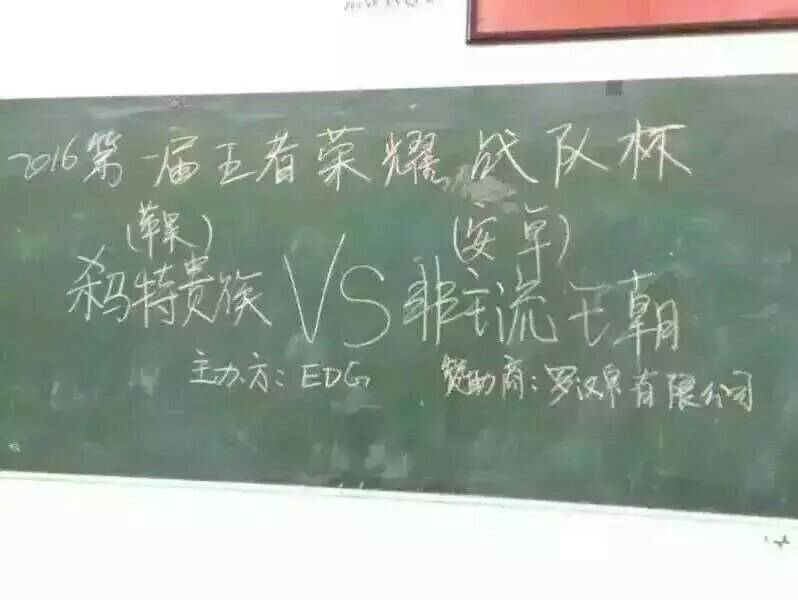 2016第一届王者荣耀战队杯
(苹果) (安卓)
杀玛特贵族 VS 非主流王朝
主办方：EDG 赞助商：罗汉果有限公司